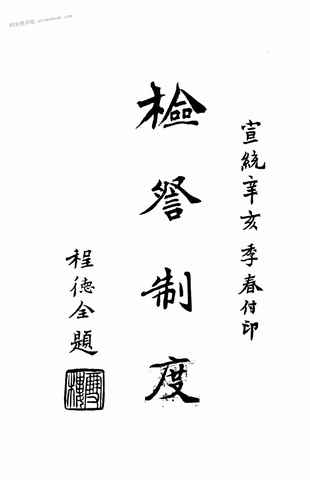 宣統辛亥季春付印
檢詧制度
程德全題
雪樓